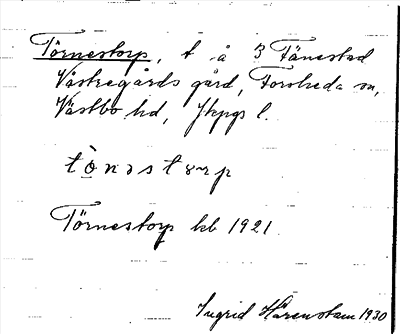 Törnestorp, t. å 3 Fånestad
Västregårds gård, Forsheda sn,
Västbo hd, Jkpgs l.
tö̀nəstɔrp
Törnestorp hb 1921.
Ingrid Härenstam 1930